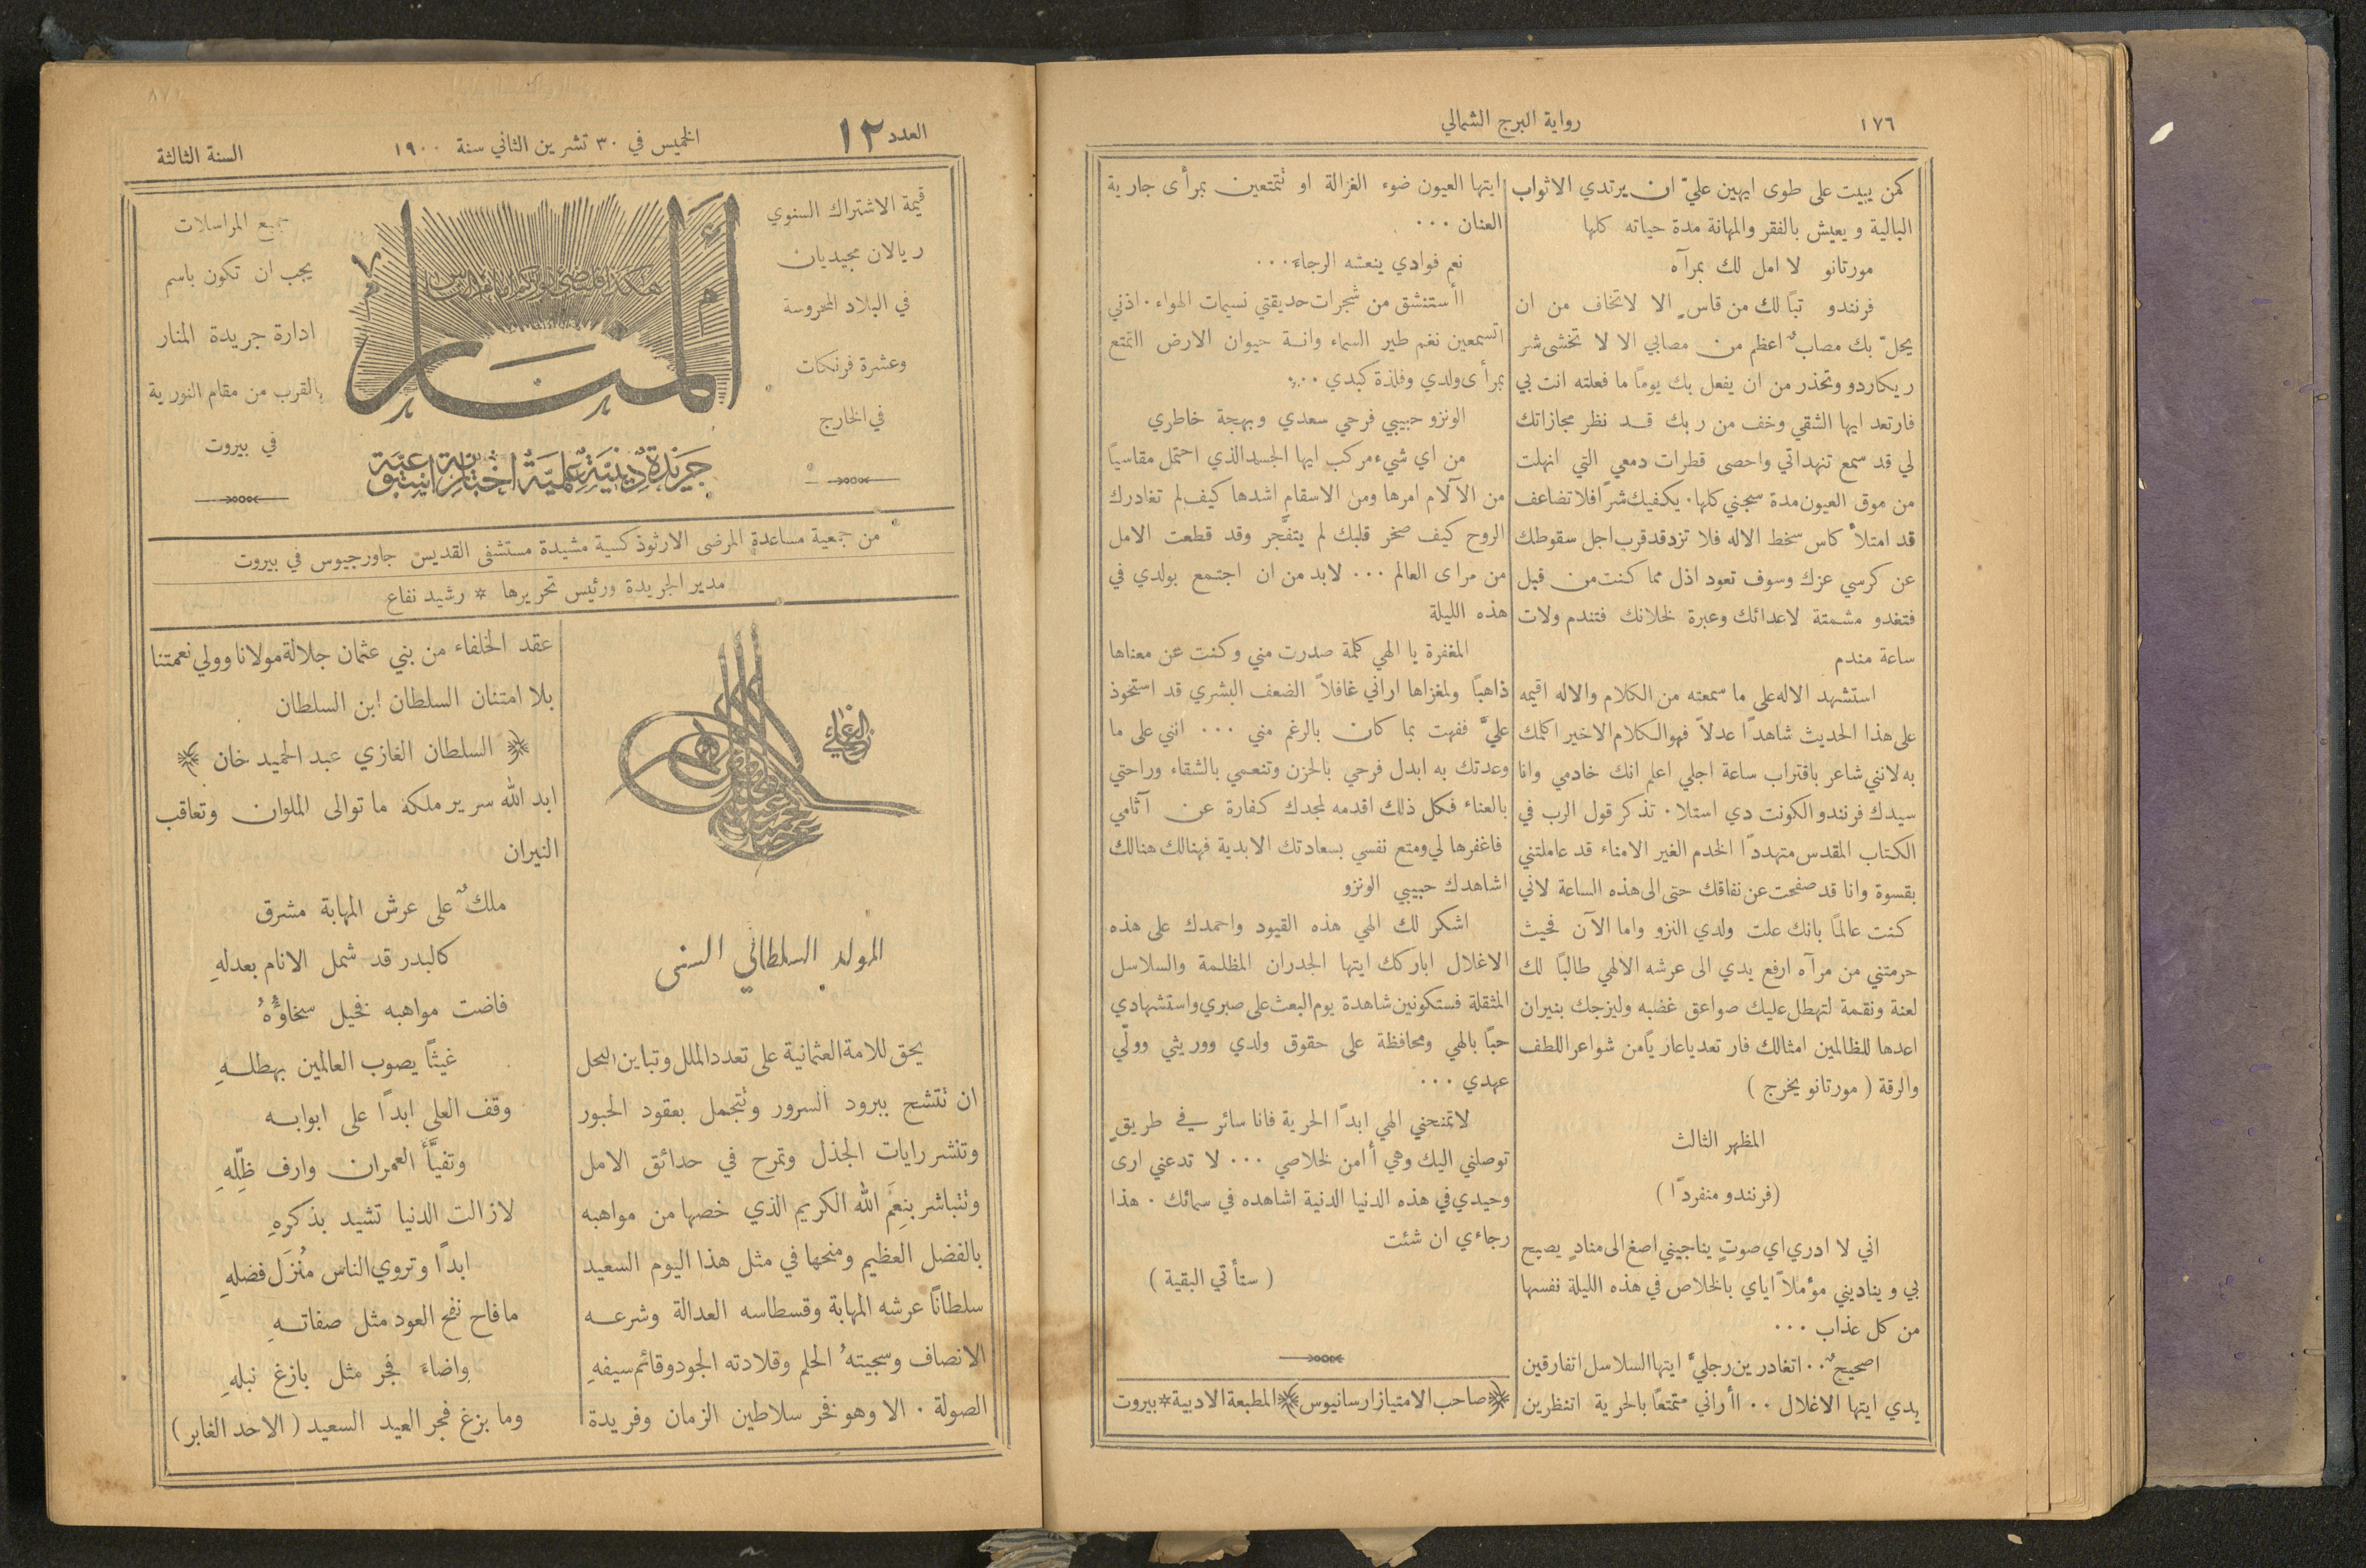 ١٧٦
رواية البرج الشمالي
كمن يبيت على طوى ايهين عليّ ان يرتدي الاثواب
البالية ويعيش بالفقر والمهانة مدة حياته كلها
مورتانو لا امل لك بمرآه
فرنندو تبًا لك من قاسٍ الا لا تخاف من ان
يحلّ بك مصابٌ اعظم من مصابي الا لا تخشى شر
ريكاردو وتحذر من ان يفعل بك يومًا ما فعلته انت بي
فارتعد ايها الشقي وخف من ربك قد نظر مجازاتك
لي قد سمع تنهداتي واحصى قطرات دمعي التي انهلت
من موق العيون مدة سجني كلها. يكفيك شرًا فلا تضاعف
قد امتلأ كاس سخط الاله فلا تزد قد قرب اجل سقوطك
عن كرسي عزك وسوف تعود اذل مما كنت من قبل
فتغدو مشمتة لاعدائك وعبرة لخلانك فتندم ولات
ساعة مندم
استشهد الاله على ما سمعته من الكلام والاله اقيمه
على هذا الحديث شاهدًا عدلاً فهو الكلام الاخير اكلمك
به لانني شاعر باقتراب ساعة اجلي اعلم انك خادمي وانا
سيدك فرنندو الكونت دي استلا. تذكر قول الرب في
الكتاب المقدس متهددًا الخدم الغير الامناء قد عاملتني
بقسوة وانا قد صفحت عن نفاقك حتى الى هذه الساعة لاني
كنت عالمًا بانك علت ولدي النزو واما الآن فحيث
حرمتني من مرآه ارفع يدي الى عرشه الالهي طالبًا لك
لعنة ونقمة لتهطل عليك صواعق غضبه وليزجك بنيران
اعدها للظالمين امثالك فارتعد يا عاريًا من شواعر اللطف
والرقة ( مورتانو يخرج )
المظهر الثالث
(فرنندو منفردًا)
اني لا ادري اي صوتٍ يناجيني اصغ الى منادٍ يصيح
بي ويناديني مؤملاً اياي بالخلاص في هذه الليلة نفسها
من كل عذاب ...
اصحيحٌ .. اتغادرين رجليَّ ايتها السلاسل اتفارقين
يدي ايتها الاغلال .. أأراني متمتعًا بالحرية اتنظرين
ايتها العيون ضوء الغزالة او تتمتعين بمرأى جارية
العنان ...
نعم فوادي ينعشه الرجاء ...
اأستنشق من شجرات حديقتي نسيمات الهواء. اذني
اتسمعين نغم طير السماء وانسة حيوان الارض اتمتع
بمرأى ولدي وفلذة كبدي ...
الونزو حبيبي فرحي سعدي وبهجة خاطري
من اي شيء مركب ايها الجسد الذي احتمل مقاسيًا
من الآلام امرها ومن الاسقام اشدها كيف لم تغادرك
الروح كيف صخر قلبك لم يتفَّجر وقد قطعت الامل
من مراى العالم ... لابد من ان اجتمع بولدي في
هذه الليلة
المغفرة يا الهي كلمة صدرت مني وكنت عن معناها
ذاهبًا ولمغزاها اراني غافلاً الضعف البشري قد استحوذ
عليَّ ففهت بما كان بالرغم مني ... انني على ما
وعدتك به ابدل فرحي بالحزن وتنعمي بالشقاء وراحتي
بالعناء فكل ذلك اقدمه لمجدك كفارة عن آثامي
فاغفرها لي ومتع نفسي بسعادتك الابدية فهنالك هنالك
اشاهدك حبيبي الونزو
اشكر لك الهي هذه القيود واحمدك على هذه
الاغلال اباركك ايتها الجدران المظلمة والسلاسل
المثقلة فستكونين شاهدة يوم البعث على صبري واستشهادي
حبًا بالهي ومحافظة على حقوق ولدي ووريثي وولّي
عهدي ...
لا تمنحني الهي ابدًا الحرية فانا سائر في طريقٍ
توصلني اليك وهي أأمن لخلاصي ... لا تدعني ارى
وحيدي في هذه الدنيا الدنية اشاهده في سمائك. هذا
رجاءي ان شئت
( ستأتي البقية )
صاحب الامتياز ارسانيوس المطبعة الادبية * بيروت
العدد ١٢
الخميس في ٣٠ تشرين الثاني سنة ١٩٠٠
السنة الثالثة
قيمة الاشتراك السنوي
ريالان مجيديان
في البلاد المحروسة
وعشرة فرنكات
في الخارج
هكذا فليضئ نوركم امام الناس
المنار
جريدة دينية علمية اخبارية اسبوعية
جميع المراسلات
يجب ان تكون باسم
ادارة جريدة المنار
بالقرب من مقام النورية
في بيروت
من جمعية مساعدة المرضى الارثوذكسية مشيدة مستشفى القديس جاورجيوس في بيروت
مدير الجريدة ورئيس تحريرها * رشيد نفاع
الغازي
المولد السلطاني السني
يحق للامة العثمانية على تعدد الملل وتباين النحل
ان تتشح ببرود السرور وتتجمل بعقود الحبور
وتنشر رايات الجذل وتمرح في حدائق الامل
وتتباشر بنِعَم الله الكريم الذي خصها من مواهبه
بالفضل العظيم ومنحها في مثل هذا اليوم السعيد
سلطانًا عرشه المهابة وقسطاسه العدالة وشرعه
الانصاف وسجيتهُ الحلم وقلادته الجود وقائم سيفهِ
الصولة. الا وهو فخر سلاطين الزمان وفريدة
عقد الخلفاء من بني عثمان جلالة مولانا وولي نعمتنا
بلا امتنان السلطان ابن السلطان
السلطان الغازي عبد الحميد خان
ابد الله سرير ملكه ما توالى الملوان وتعاقب
النيران
ملكٌ على عرش المهابة مشرق
كالبدر قد شمل الانام بعدلهِ
فاضت مواهبه فخيل سخاؤُهُ
غيثًا يصوب العالمين بهطلهِ
وقف العلى ابدًا على ابوابه
وتفيَّأَ العمران وارف ظِلّهِ
لازالت الدنيا تشيد بذكرهِ
ابدًا وتروي الناس مُنزَل فضلهِ
ما فاح نفح العود مثل صفاتهِ
واضاءَ فجر مثل بازغ نبلهِ
وما بزغ فجر العيد السعيد ( الاحد الغابر )